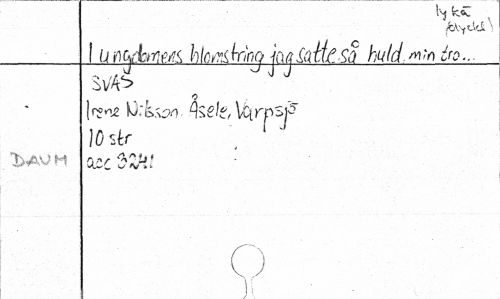 lyckå
(olycka)
I ungdomens blomstring jag satte så huld min tro...
SVAS
Irene Nilsson, Åsele, Varpsjö
10 str
DAUM acc 3241